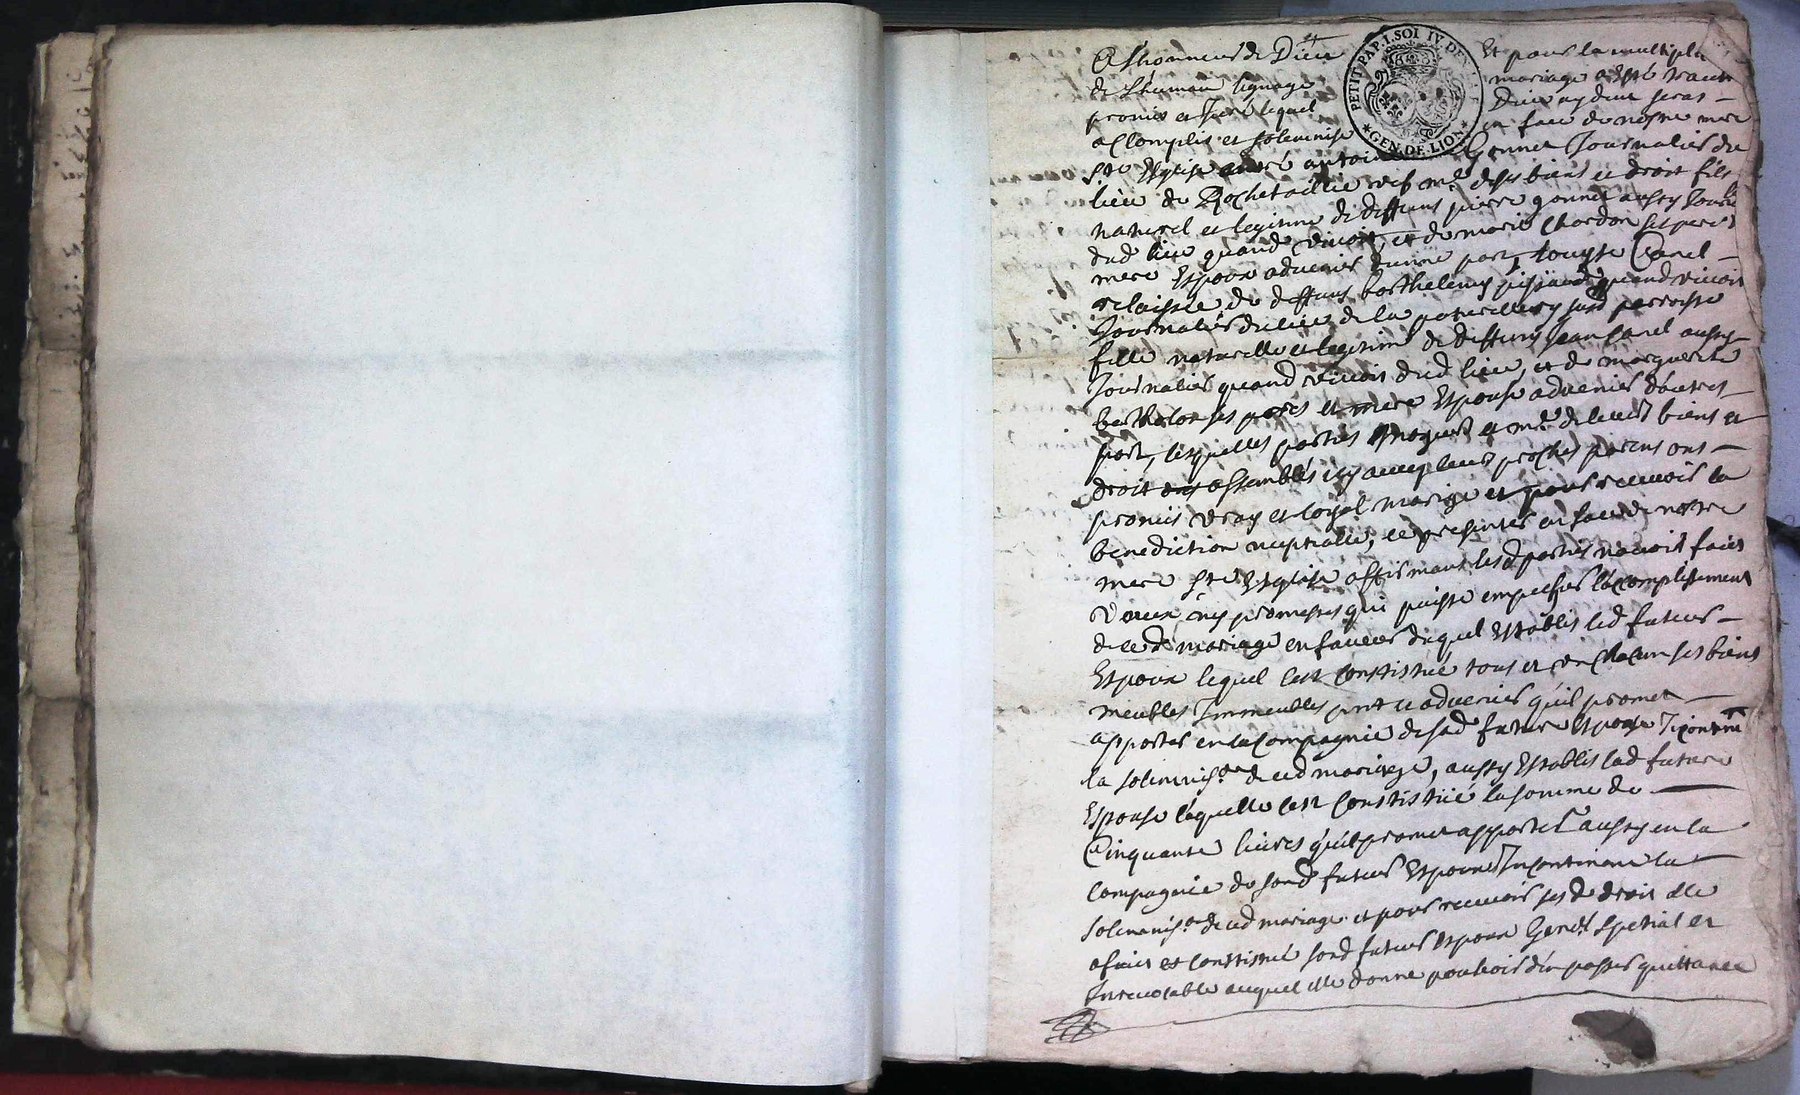 PETIT PAP. 1. SOL IV DEN
GEN. DE LION
A l'honneur de Dieu Et pour la multipli
de l'humain lignage mariage a esté traité
promis et Juré lequel Dieu aydant seras
acComplis et solemnisé en face de nostre mere
Ste Esglise entre antoine Gonnet Journalier du
lieu de Rochetaillée mre de ses biens et droit fils
naturel et legitime de deffunt pierre gonnet aussy Jour
dud lieu quand vivoit, et de marie Chardon ses pere et
mere Espoux advenir d'une part, Canel
relaissée de deffunt barthelemy quand vivoit
Journalier du lieu de la parroisse
fille naturelle et legitime de deffunt Jean Canel aussy
Journalier quand vivoit dud lieu, et de marguerite
bertholon ses peres et mere Espouse advenir d'autres
part, lesquelles parties et mre de leurs biens et
droit assemblés icy avecq leurs proches parens ont
promis vray et loyal mariage et pour recevoir la
benediction nuptialle, ce presenter en face de nostre
mere Ste Esglise affirmant lesd parties n'avoir faict
voeux, ny promesses qui puisse empescher l'acomplissement
de ced mariage en faveur duquel Establis led futeur
Espoux lequel c'est Constitué tous et un chacun ses biens
meubles Immeubles pnt et advenir qu'il promet
apporter en la Compagnie de sad future Espouse Incontinant
la solemnison de ced mariage, aussy Establis lad future
Espouse laquelle c'est Constitüé la somme de
Cinquante livres qu'il promet apporter aussy en la
Compagnie de sond futeur Espoux Incontinant la
solemnison de ced mariage et pour recevoir sesd droit elle
a faict et Constitué sond futeur Espoux Genal spetial et
Irrevocable auquel elle donne pouvoir d'en passer quittance